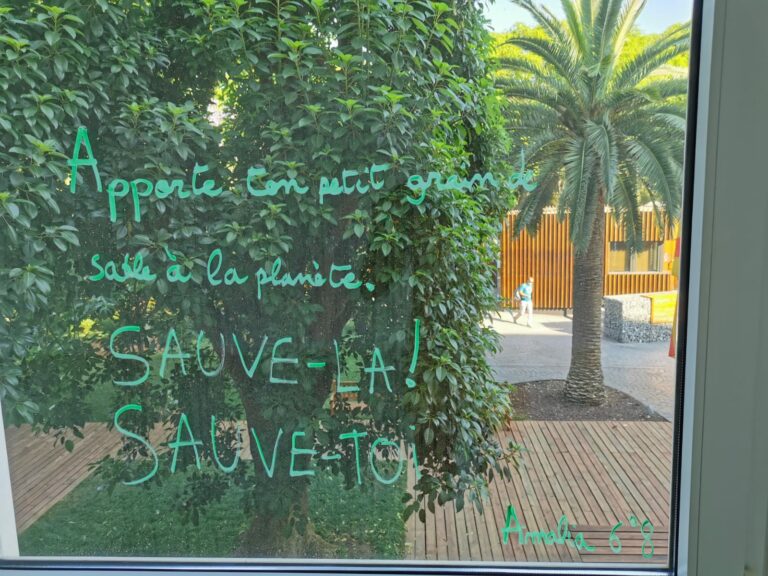 Apporte ton petit grain de
sable à la planète.
SAUVE-LA!
SAUVE-TOI
Annalia 6°8